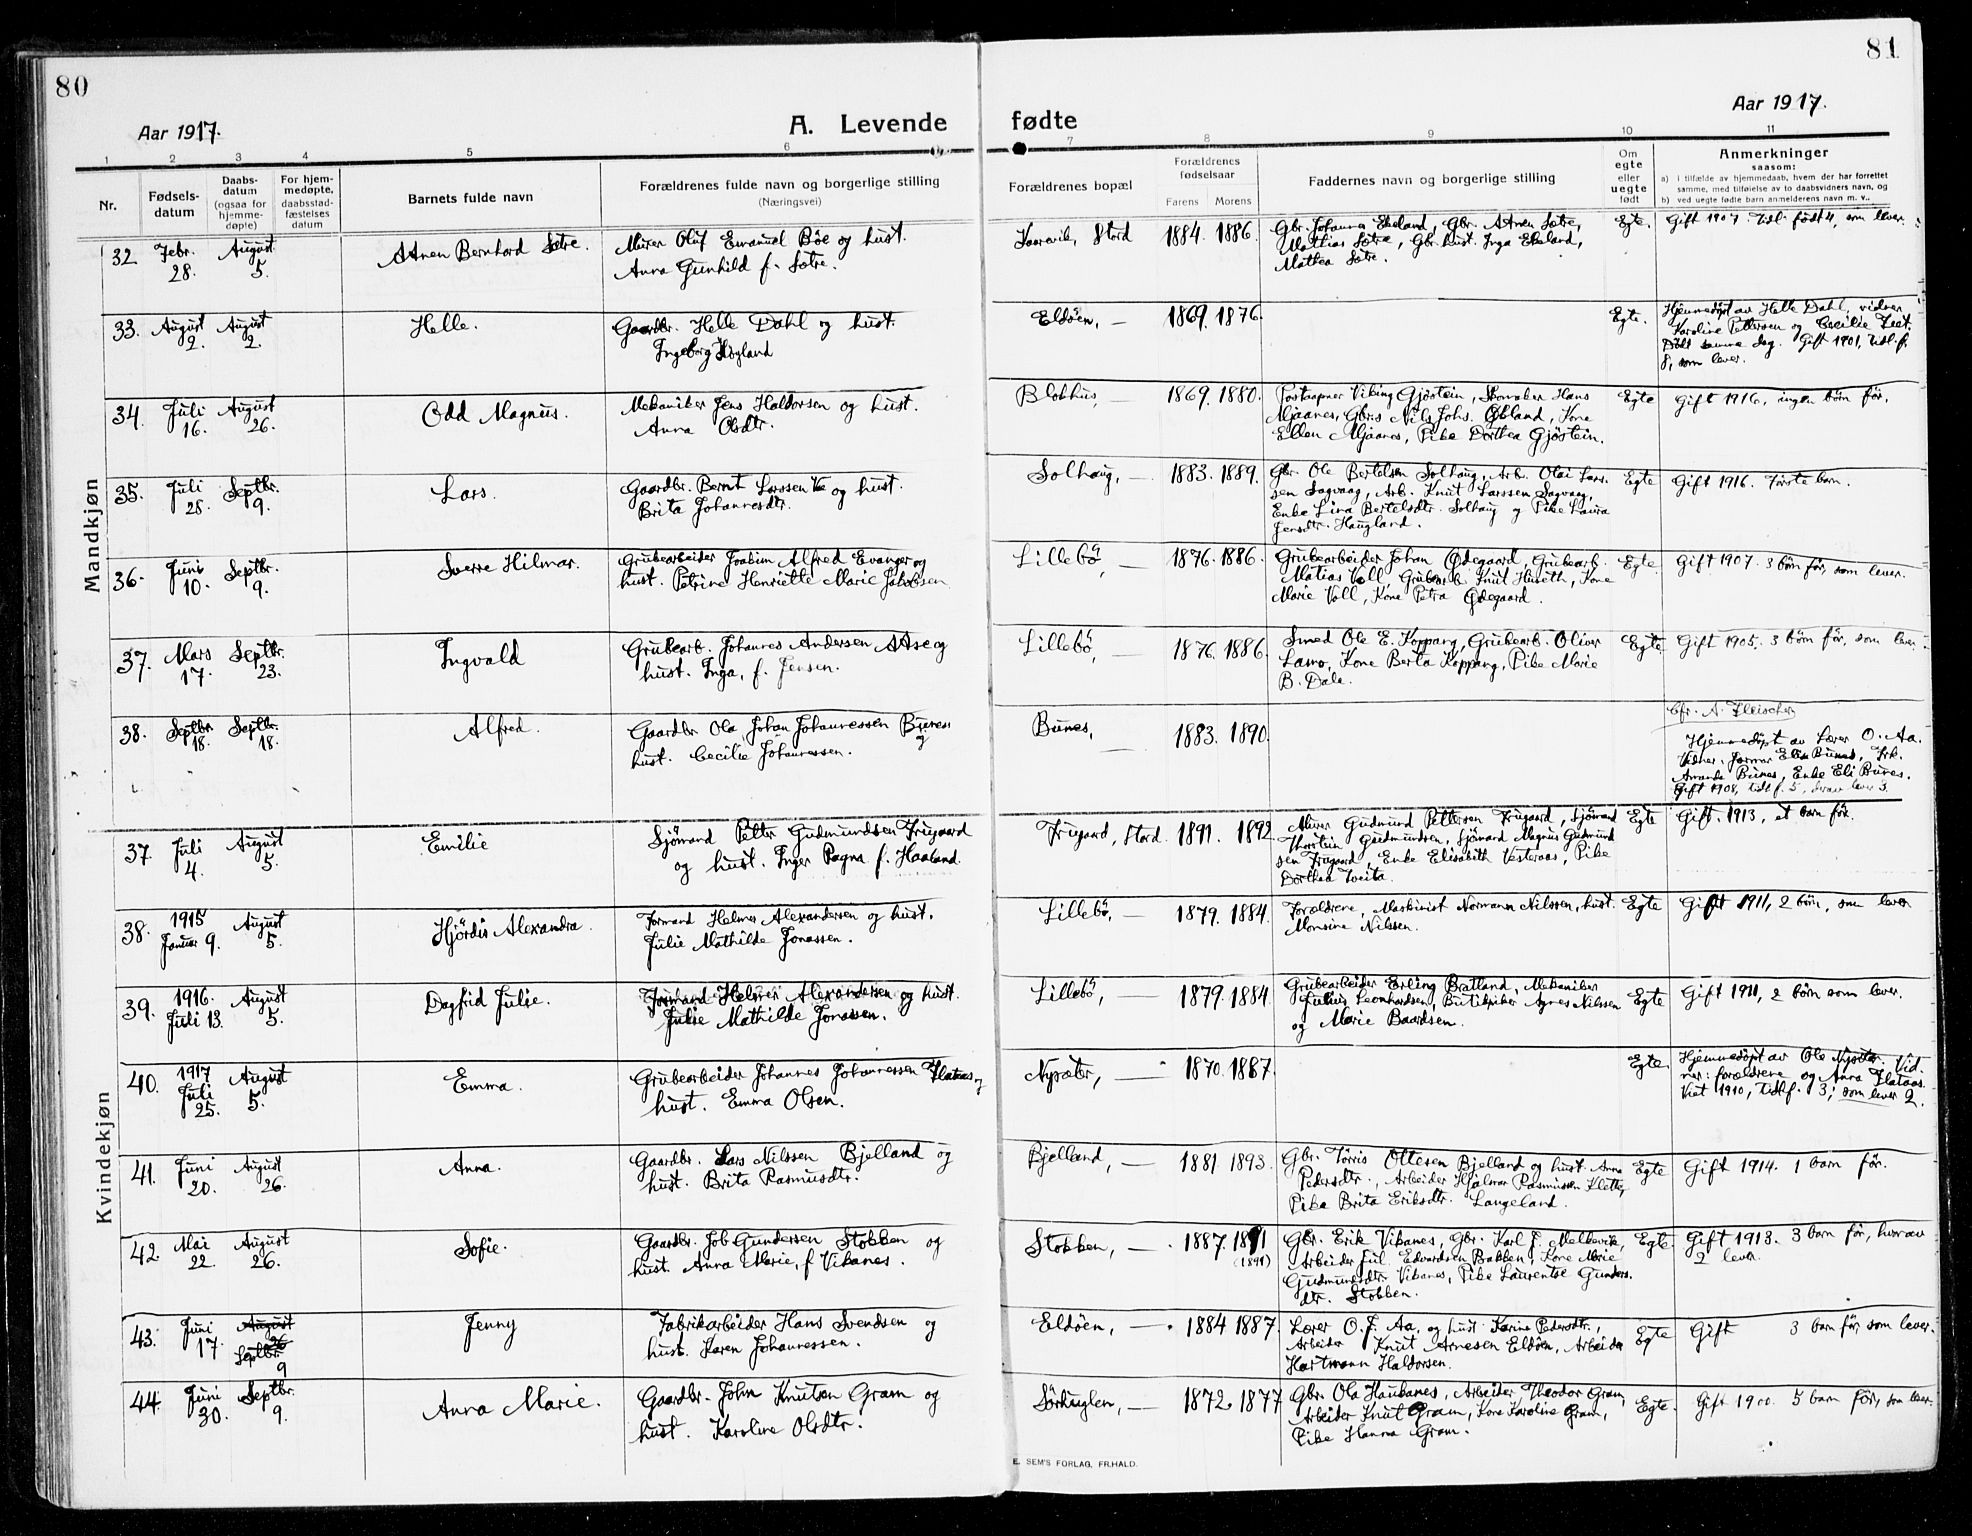 80
Aar 1917.
A. Levende
1 2 3 4 5 6
Nr.
Fødsels-
datum
Daabs-
datum
(ogsaa for
hjemme-
døpte)
For hjem-
medøpte,
daabsstad-
fæstelses
datum
Barnets fulde navn
Forældrenes fulde navn og borgerlige stilling
(Næringsvei)
Mandkjøn
32 Febr. 28. August 5. Bernhard Sætre.
Murer Oluf Emanuel Böe og hust.
Anna Gunhild f. Sætre.
33. August 2. August 2. Helle.
Gaardbr. Helle Dahl og hust.
Ingeborg Hogland
34. Juli 16. August 26. Odd Magnus.
Mekaniker Jens Haldorsen og hust.
Anna Olsdtr.
35. Juli 28. Septbr. 9. Lars.
Gaardbr. Bernt Larssen og hust.
Brita Johannesdtr.
36. Juni 10. Septbr. 9. Sverre Hilmar.
Grubearbeider Joakim Alfred Evanger og
hust. Petrine Henriette Marie Jakobsen
37. Mars 17. Septbr. 23. Ingvald
Grubearb. Johannes Andersen Aase og
hust. Inga, f. Jensen.
38. Septbr. 18. Septbr. 18. Alfred.
Gaardbr. Ola Johan Johannessen Bunes
og
hust. Cecilie Johannessen.
Kvindekjøn
37 Juli 4. August 5. Emilie
Sjömand Petter Gudmundsen Frugaard
og hust. Inger Ragna f. Haaland.
38. 1915 Januar 9. August 5. Hjördis Alexandra.
Formand Helmer Alexandersen og hust.
Julie Mathilde Jonassen.
39. 1916. Juli 13. August 5. Dagfrid Julie.
Formand Helmer Alexandersen og hust.
Julie Mathilde Jonassen.
40. 1917 Juli 25. August 5. Emma.
Grubearbeider Johannes Johannessen Flataas og
hust. Emma Olsen.
41. Juni 20. August 26. Anna.
Gaardbr. Lars Nilssen Bjelland og
hust. Brita Rasmusdtr.
42. Mai 22. August 26. Sofie.
Gaardbr. Job Gundersen Stokken og
hust. Anna Marie, f. Vikanes.
43. Juni 17. August 26 Septbr. 9 Jenny
Fabrikarbeider Hans Svendsen og
hust. Karen Johannessen.
44. Juni 30. Septbr. 9. Anna Marie.
Gaardbr. John Knutsen Gram og
hust. Karoline Olsdtr.
81
Aar 1917.
fødte
7 8 9 10 11
Forældrenes bopæl
Forældrenes
fødselsaar
Farens Morens
Faddernes navn og borgerlige stilling
Om
egte
eller
uegte
født
Anmerkninger
saasom:
a) i tilfælde av hjemmedaab, hvem der har forrettet
samme, med tilføielse av to daabsvidners navn, og
b) ved uegte fødte barn anmelderens navn m. v..
Stord 1884. 1886.
Gbr. Johannes Ekeland, Gbr. Sætre,
Mathias Sætre, Gbr. hust. Inga Ekeland,
Mathea Sætre.
Egte. Gift 1907. Tidl. født 4, som lever.
Eldöen, — 1869. 1876.
Egte. Hjemmedöpt av Helle Dahl, vidner
Karoline Pettersen og Cecilie
Död samme dag. Gift 1901, tidl. f.
8, som lever.
Blokhus, — 1869. 1880.
Postaapner Viking Gjöstein, Skomaker Hans
Mjaanes, Nils Johs. Kone
Ellen Mjaanes, Pike Dorthea Gjöstein.
Egte Gift 1916, ingen börn för.
Solhaug, — 1883. 1889.
Gbr. Ole Bertelsen Solhaug, Arb. Olai Lars-
sen Sagvaag, Arb. Knut Larssen Sagvaag,
Enke Lina Bertelsdtr. Solhaug og Pike Laura
Jensdtr. Haugland.
Egte Gift 1916. Förste barn.
Lillebö, — 1876. 1886.
Grubearbeider Johan Ødegaard, Grubearb.
Matias Voll, Grubearb. Knut Kone
Marie Voll, Kone Petra Ødegaard.
Egte. Gift 1907. 3 börn för, som lever.
Lillebö, — 1876. 1886.
Smed Ole E. Koppang, Grubearb. Oliver
Kone Berta Koppang, Pike Marie
B. Dale.
Egte Gift 1905. 3 börn för, som lever.
Bunes, — 1883. 1890.
Cfr. A. Fleischer
Hjemmedöpt av Lærer O. Aa.
Vidner. Bunes, Frk.
Amanda Bunes, Enke Eli Bunes.
Gift 1908, tidl. f. 5, hvorav lever 3.
Frugaard, Stord. 1891. 1892
Murer Gudmund Pettersen Frugaard, Sjömand
Thorstein Gudmundsen, Sjömand Magnus Gudmund
sen Frugaard, Enke Elisabeth Vesteraas, Pike
Dorthea Tveita.
Egte Gift. 1913, et barn för.
Lillebö, — 1879. 1884.
Forældrene, Maskinist Normann Nilssen, hust.
Monsine Nilssen.
Egte Gift 1911, 2 börn, som lever
Lillebö, — 1879. 1884.
Grubearbeider Erling Bratland, Mekaniker
Julius Leonhardsen, Butikpike Agnes Nilssen
og Marie Baardsen.
Egte Gift 1911, 2 börn som lever.
Nysæter, — 1870. 1887.
Egte. Hjemmedöpt av Ole Nysæter. Vid-
ner: forældrene og Anna Flataas.
Viet 1910, tidl. f. 3, som lever 2.
Bjelland, — 1881. 1893.
Gbr. Törris Ottesen Bjelland og hust. Anna
Pedersdtr., Arbeider Hjalmar Rasmussen Klette,
Pike Brita Eriksdtr. Langeland.
Egte Gift 1914. 1 barn för.
Stokken, —. 1887. 1891
(1891)
Gbr. Erik Vikanes, Gbr. Karl J. Melkevik,
Arbeider Jul. Edvardsen Bakken, Kone Marie
Gudmundsdtr. Vikanes, Pike Laurentse Gunders-
dtr. Stokken.
Egte. Gift 1913. 3 barn för, hvorav
2 lever.
Eldöen, —. 1884. 1887.
Lærer O. J. Aa. og hust. Karine Pedersdtr.,
Arbeider Knut Arnesen Eldöen, Arbeider
Hartmann Haldorsen.
Egte Gift 3 barn för, som lever.
Sörhuglen, — 1872. 1877
Gbr. Ola Haukanes, Arbeider Theodor Gram,
Arbeider Knut Gram, Kone Karoline Gram,
Pike Hanna Gram.
Egte. Gift 1900. 5 barn för, som lever.
E. SEM'S FORLAG, FR.HALD.